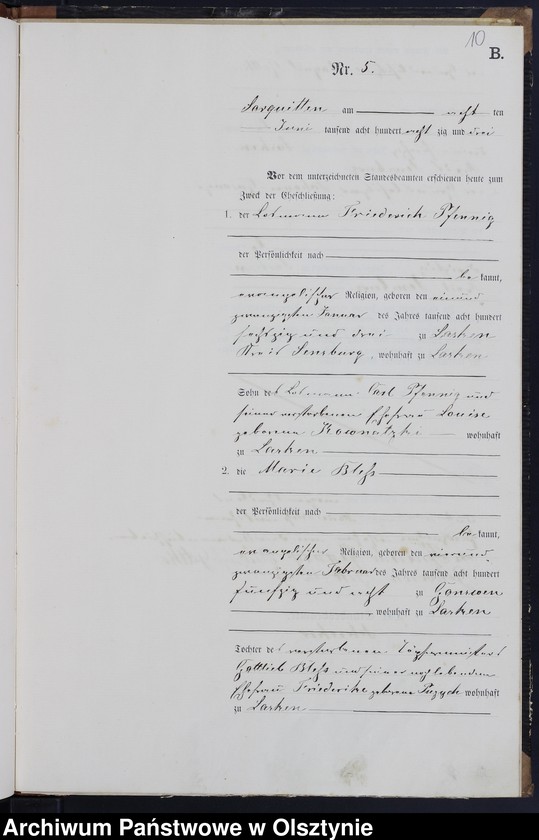 10
B.
Nr. 5.
Sorquitten am acht ten
Juni tausend acht hundert acht zig und drei
Vor dem unterzeichneten Standesbeamten erschienen heute zum
Zweck der Eheschließung:
1. der Losmann Friederich Pfennig
der Persönlichkeit nach
be kannt,
evangelischer Religion, geboren den einund
zwanzigsten Januar des Jahres tausend acht hundert
sechszig und drei zu Lasken
Kreis Sensburg, wohnhaft zu Lasken
Sohn des Losmann Carl Pfennig und
seiner verstorbenen Ehefrau Louise
geborene Kownatzki wohnhaft
zu Lasken
2. die Marie Bless
der Persönlichkeit nach
be kannt,
evangelischer Religion, geboren den vierund
zwanzigsten Februar des Jahres tausend acht hundert
fünfzig und acht zu
wohnhaft zu Lasken
Tochter des verstorbenen Töpfermeisters
Gottlieb Bless und seiner noch lebenden
Ehefrau Friederike geborene wohnhaft
zu Lasken
Archiwum Państwowe w Olsztynie